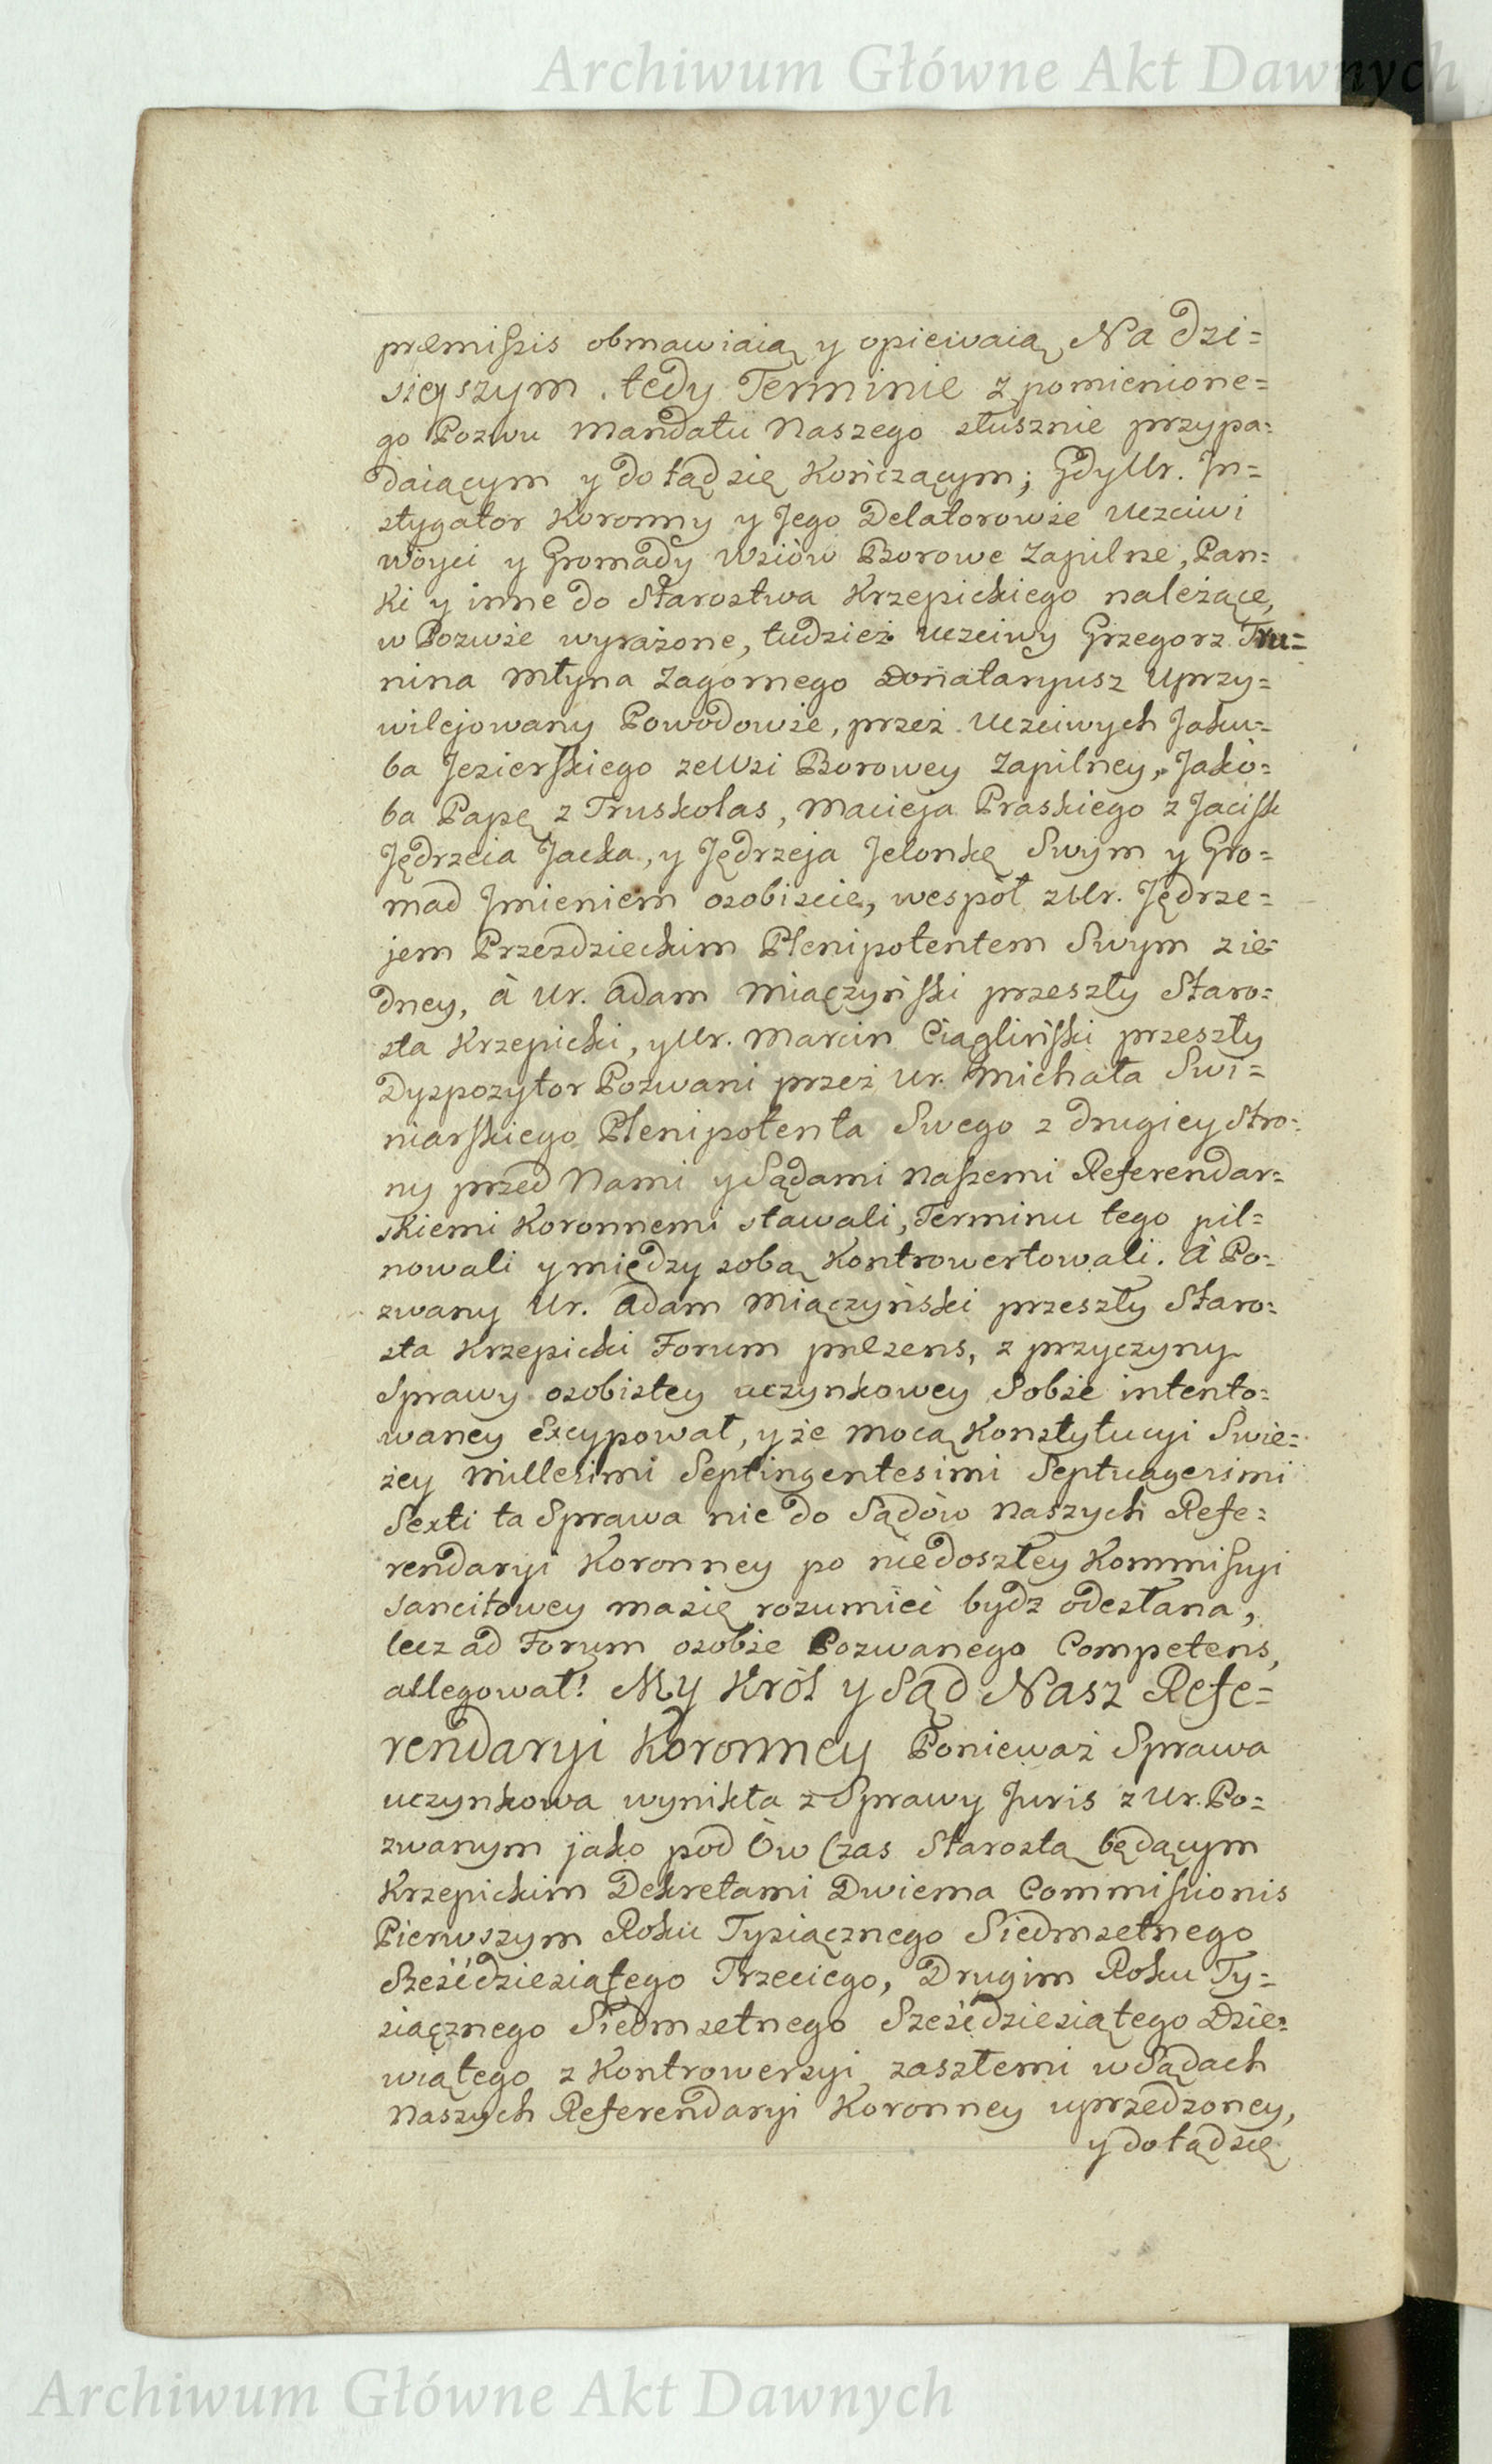 Archiwum Główne Akt Dawnych
præmissis obmawiaią y opiewaią Na dzi=
sieyszym tedy Terminie z pomienione=
go Pozwu Mandatu Naszego słusznie przypa=
daiącym y dotąd się Kończącym; Gdy Ur. In=
stygator Koronny y Jego Delatorowie Uczciwi
Woyci y Gromady Wsiów Borowe Zapilne, Pan=
ki y inne do Starostwa Krzepickiego należące,
w Pozwie wyrażone, tudzież Uczciwy Grzegorz Tru=
nina Młyna Zagornego Donataryusz Uprzy=
wilejowany Powodowie, przez Uczciwych Jaku=
ba Jezierskiego ze Wsi Borowey Zapilney, Jakó=
ba Papę z Truskolas, Macieja Praskiego z Jacisk
Jędrzeia Jacka, y Jędrzeja Jelonkę Swym y Gro=
mad Jmieniem osobiscie, wespół z Ur. Jędrze=
jem Przezdzieckim Plenipotentem Swym z ie=
dney, à Ur. Adam Miączyński przeszły Staro=
sta Krzepicki, y Ur. Marcin Ciągliński przeszły
Dyspozytor Pozwani przez Ur. Michała Swi=
niarskiego Plenipotenta Swego z drugiey Stro=
ny przed Nami y Sądami Naszemi Referendar=
skiemi Koronnemi stawali, Terminu tego pil=
nowali y między sobą Kontrowertowali. A Po=
zwany Ur. Adam Miączyński przeszły Staro=
sta Krzepicki Forum præsens, z przyczyny
Sprawy osobistey uczynkowey Sobie intento=
waney Excypował, y że mocą Konstytucyi Swie=
żey Millesimi Septingentesimi Septuagesimi
Sexti ta Sprawa nie do Sądów Naszych Refe=
rendaryi Koronney po niedoszłey Kommissyi
sancitowey ma się rozumieć bydz odesłana,
lecz ad Forum osobie Pozwanego Competens,
allegował! My Król y Sąd Nasz Refe=
rendaryi Koronney Ponieważ Sprawa
uczynkowa wynikła z Sprawy Juris z Ur. Po=
zwanym jako pod Ów Czas Starostą będącym
Krzepickim Dekretami Dwiema Commissionis
Pierwszym Roku Tysiącznego Siedmsetnego
Sześćdziesiątego Trzeciego, Drugim Roku Ty=
siącznego Siedmsetnego Sześćdziesiątego Dzie=
wiątego z Kontrowersyi zaszłemi w Sądach
Naszych Referendaryi Koronney uprzedzoney,
y dotąd się
Archiwum Główne Akt Dawnych